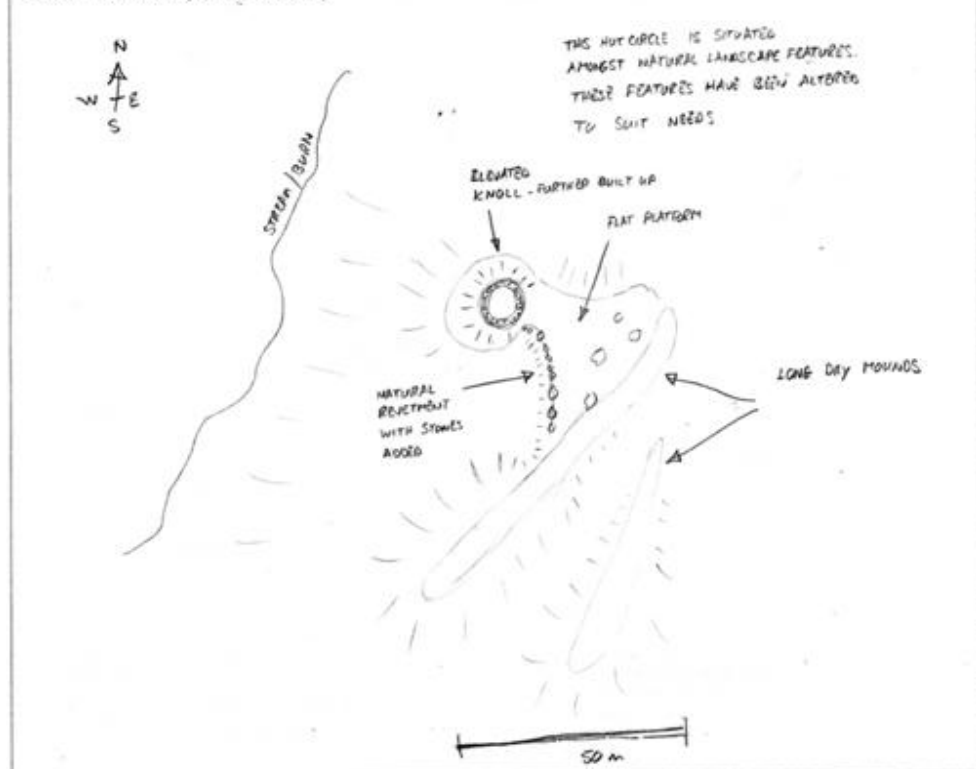 N
W E
S
THIS HUT CIRCLE IS SITUATED
AMONGST NATURAL LANDSCAPE FEATURES.
THESE FEATURES HAVE BEEN ALTERED
TO SUIT NEEDS
STREAM/BURN
ELEVATED
KNOLL - FURTHER BUILT UP
FLAT PLATFORM
NATURAL
REVETMENT
WITH STONES
ADDED
LONG DRY MOUNDS
50 m